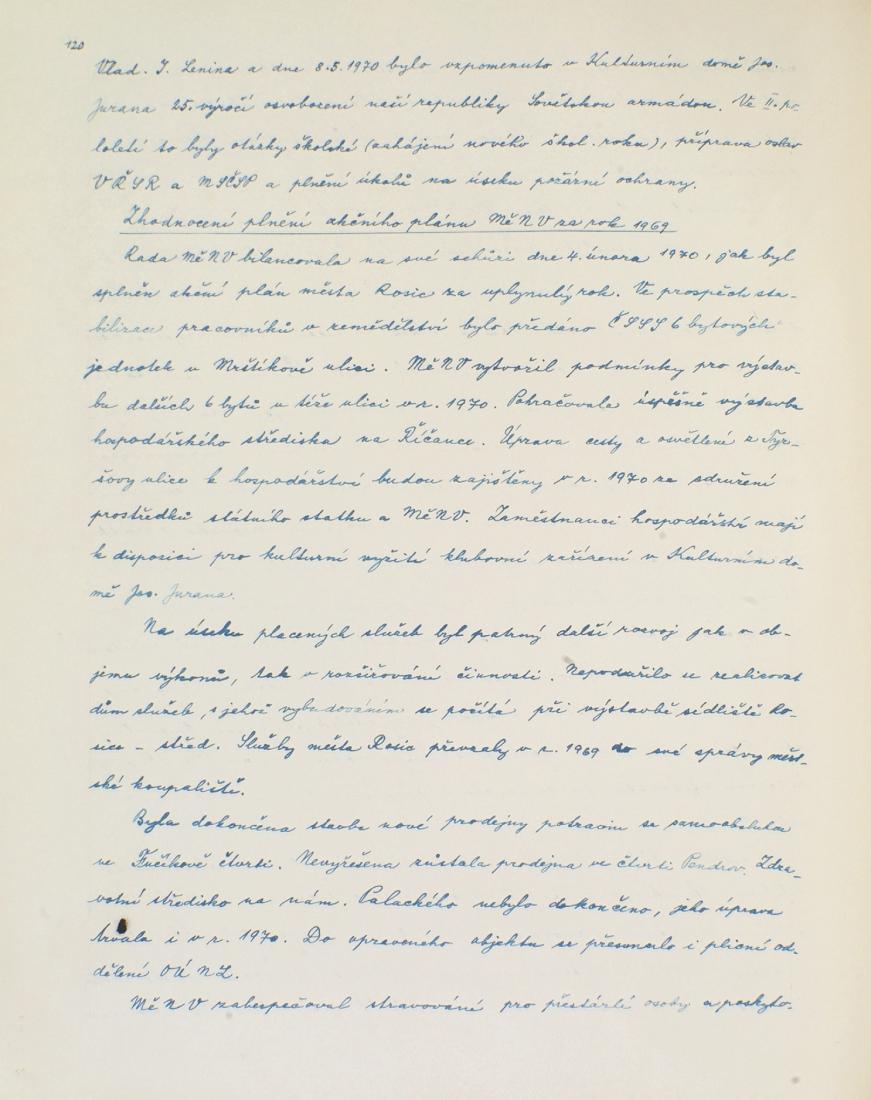 120
Vlad. I. Lenina a dne 8.5.1970 bylo vzpomenuto v Kulturním domě Jos.
Jurana 25. výročí osvobození naší republiky Sovětskou armádou. Ve II. po-
loletí to byly otázky školské (zahájení nového škol. roku), příprava oslav
VŘSR a MSČSP a plnění úkolů na úseku požární ochrany.
Zhodnocení plnění akčního plánu MěNV za rok 1969
Rada MěNV bilancovala na své schůzi dne 4. února 1970, jak byl
splněn akční plán města Rosic za uplynulý rok. Ve prospěch sta-
bilizace pracovníků v zemědělství bylo předáno ČSSS 6 bytových
jednotek v Mrštíkově ulici. MěNV vytvořil podmínky pro výstav-
bu dalších 6 bytů v téže ulici v r. 1970. Pokračovala úspěšně výstavba
hospodářského střediska na Říčance. Úprava cesty a osvětlení z Tyr-
šovy ulice k hospodářství budou zajištěny v r. 1970 ze sdružení
prostředků státního statku a MěNV. Zaměstnanci hospodářství mají
k disposici pro kulturní vyžití klubovní zařízení v Kulturním do-
mě Jos. Jurana.
Na úseku placených služeb byl patrný další rozvoj jak v ob-
jemu výkonů, tak v rozšiřování činnosti. Nepodařilo se realizovat
dům služeb, s jehož vybudováním se počítá při výstavbě sídliště Ro-
sice - střed. Služby města Rosic převzaly v r. 1969 do své správy měst-
ské koupaliště.
Byla dokončena stavba nové prodejny potravin se samoobsluhou
ve Fučíkově čtvrti. Nevyřešena zůstala prodejna ve čtvrti Pendrov. Zdra-
votní středisko na nám. Palackého nebylo dokončeno, jeho úprava
trvala i v r. 1970. Do upraveného objektu se přesunulo i plicní od-
dělení OÚNZ.
MěNV zabespečoval stravování pro přestárlé osoby a poskyto-